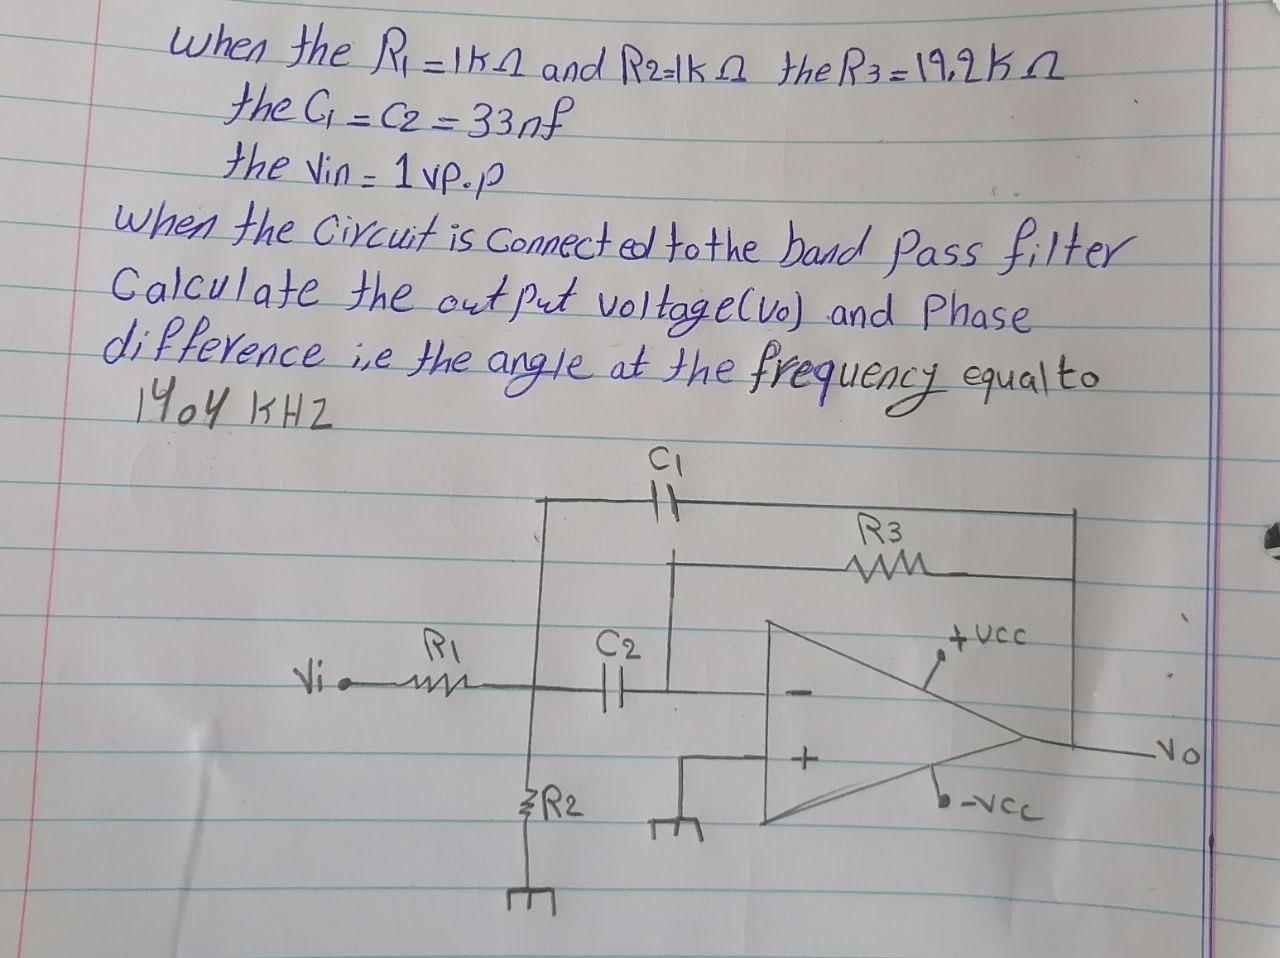 When the R1=1kΩ and R2=1kΩ the R3=19.2kΩ
the C1=C2=33nf
the Vin=1vp.p
When the Circuit is Connected to the band Pass filter
Calculate the output voltage(Vo) and Phase
difference i,e the angle at the frequency equal to
1404 KHZ
C1
R3
+VCC
R1
C2
Vi
-
+
Vo
R2
-VCC